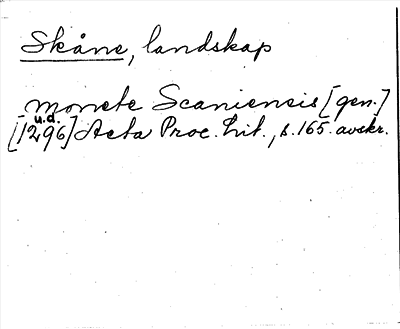 Skåne, landskap
monete Scaniensis [gen.]
u.d.
[1296] Acta Proc. Lit., s. 165. avskr.